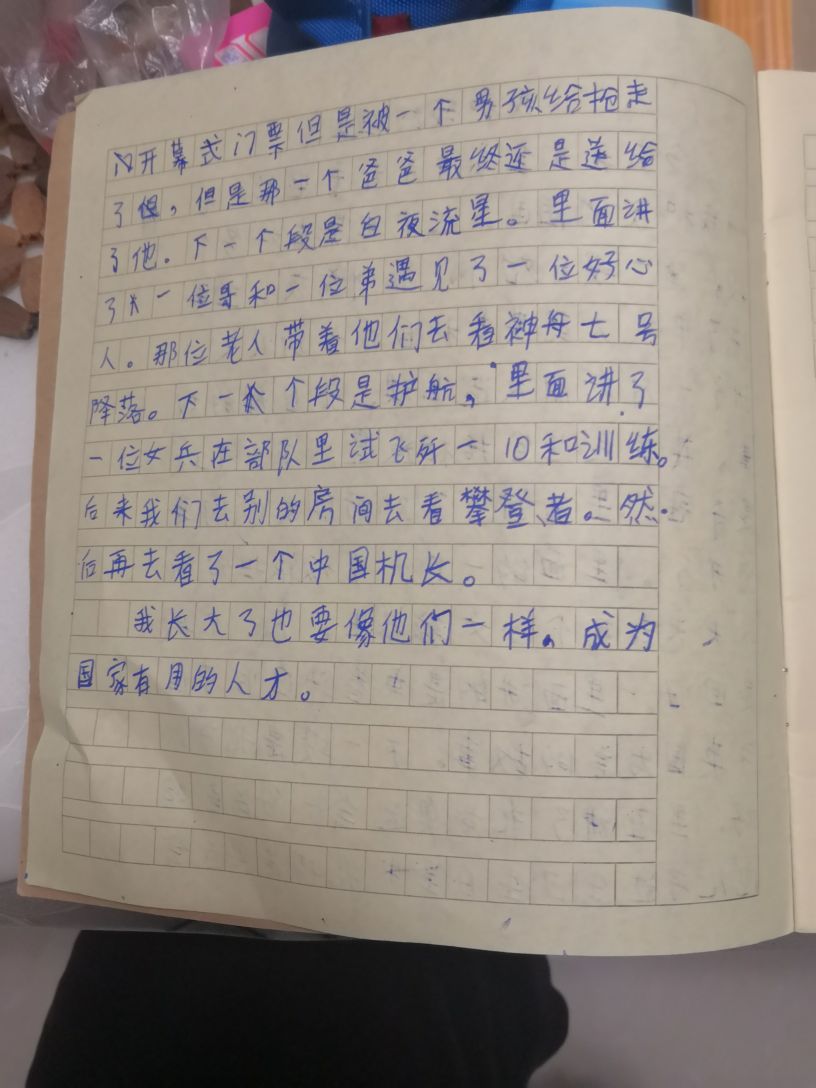 开幕式门票但是被一个男孩给抢走
了但,但是那一个爸爸最终还是送给
了他。下一个段是白夜流星。里面讲
了一位哥和一位弟遇见了一位好心
人。那位老人带着他们去看神舟七号
降落。下一个段是护航,里面讲了
一位女兵在部队里试飞歼一10和训练。
后来我们去别的房间去看攀登者。然
后再去看了一个中国机长。
我长大了也要像他们一样,成为
国家有用的人才。